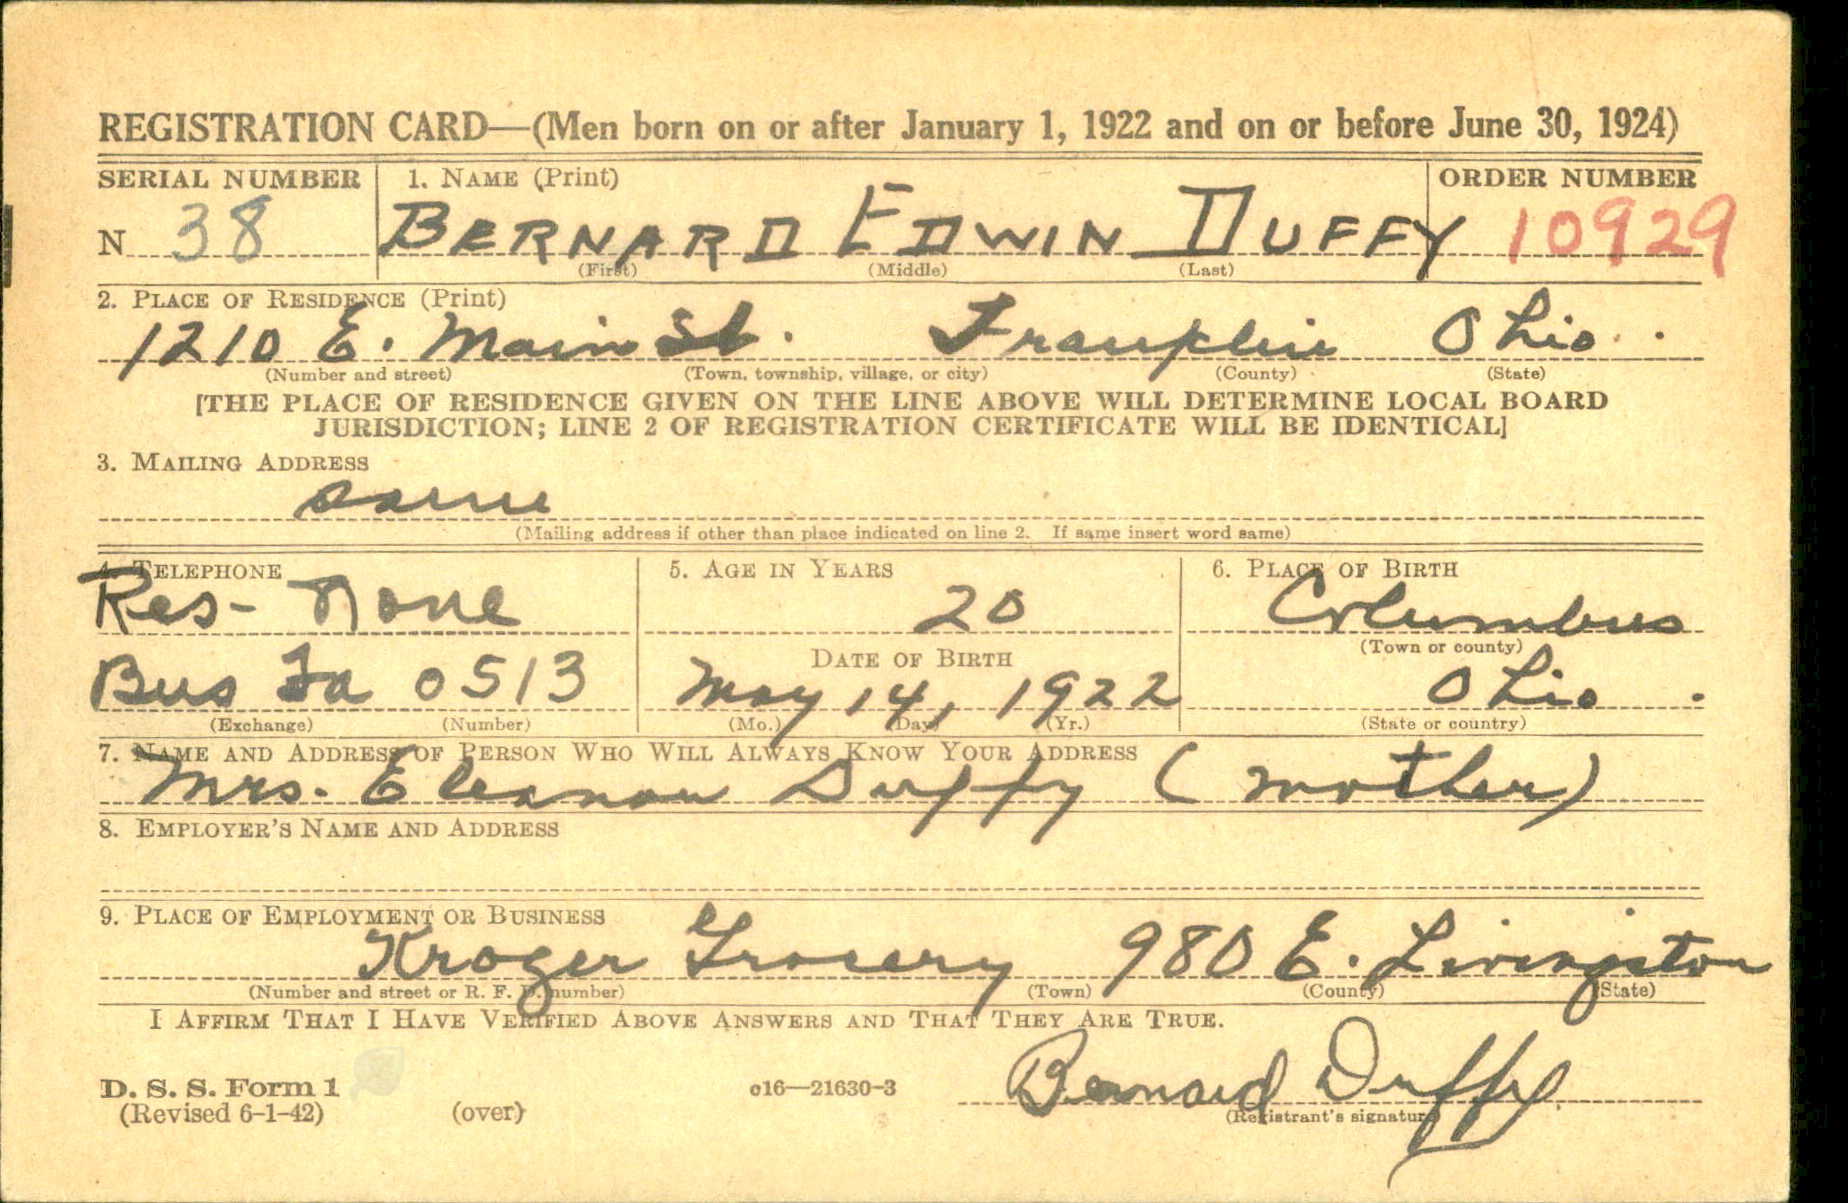 REGISTRATION CARD—(Men born on or after January 1, 1922 and on or before June 30, 1924)
SERIAL NUMBER 1. NAME (Print) ORDER NUMBER
N 38 BERNARD EDWIN DUFFY 10929
(First) (Middle) (Last)
2. PLACE OF RESIDENCE (Print)
1210 E. Main St. Franklin Ohio.
(Number and street) (Town, township, village, or city) (County) (State)
[THE PLACE OF RESIDENCE GIVEN ON THE LINE ABOVE WILL DETERMINE LOCAL BOARD
JURISDICTION; LINE 2 OF REGISTRATION CERTIFICATE WILL BE IDENTICAL]
3. MAILING ADDRESS
same
(Mailing address if other than place indicated on line 2. If same insert word same)
4. TELEPHONE 5. AGE IN YEARS 6. PLACE OF BIRTH
Res- None 20 Columbus
DATE OF BIRTH (Town or county)
Bus Fa 0513 May 14, 1922 Ohio.
(Exchange) (Number) (Mo.) (Day) (Yr.) (State or country)
7. NAME AND ADDRESS OF PERSON WHO WILL ALWAYS KNOW YOUR ADDRESS
Mrs. Eleanor Duffy (mother)
8. EMPLOYER'S NAME AND ADDRESS
9. PLACE OF EMPLOYMENT OR BUSINESS
Kroger Grocery 980 E. Livingston
(Number and street or R. F. D. number) (Town) (County) (State)
I AFFIRM THAT I HAVE VERIFIED ABOVE ANSWERS AND THAT THEY ARE TRUE.
D. S. S. Form 1 c16—21630-3 Bernard Duffy
(Revised 6-1-42) (over) (Registrant's signature)